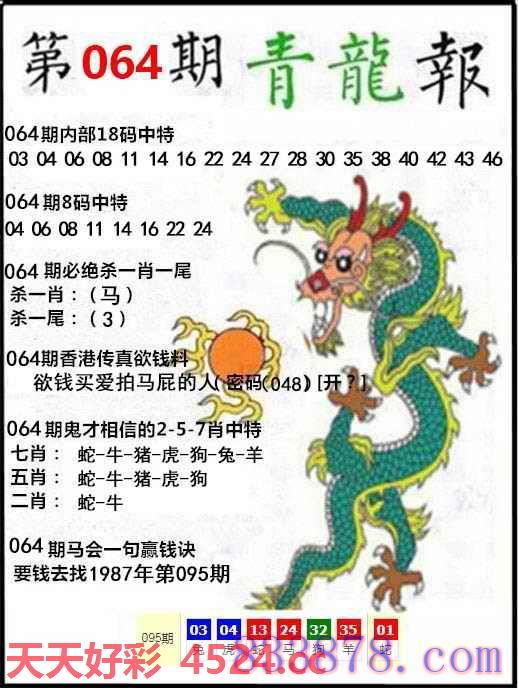 第 064 期 青龍報
064期内部18码中特
03 04 06 08 11 14 16 22 24 27 28 30 35 38 40 42 43 46
064期8码中特
04 06 08 11 14 16 22 24
064 期必绝杀一肖一尾
杀一肖：(马)
杀一尾：(3)
064期香港传真欲钱料
欲钱买爱拍马屁的人(密码(048)[开?]
064期鬼才相信的2-5-7肖中特
七肖： 蛇-牛-猪-虎-狗-兔-羊
五肖： 蛇-牛-猪-虎-狗
二肖： 蛇-牛
064期马会一句赢钱诀
要钱去找1987年第095期
095期 03 04 13 24 32 35 01
兔 虎 蛇 马 狗 羊 蛇
天天好彩 4524.cc